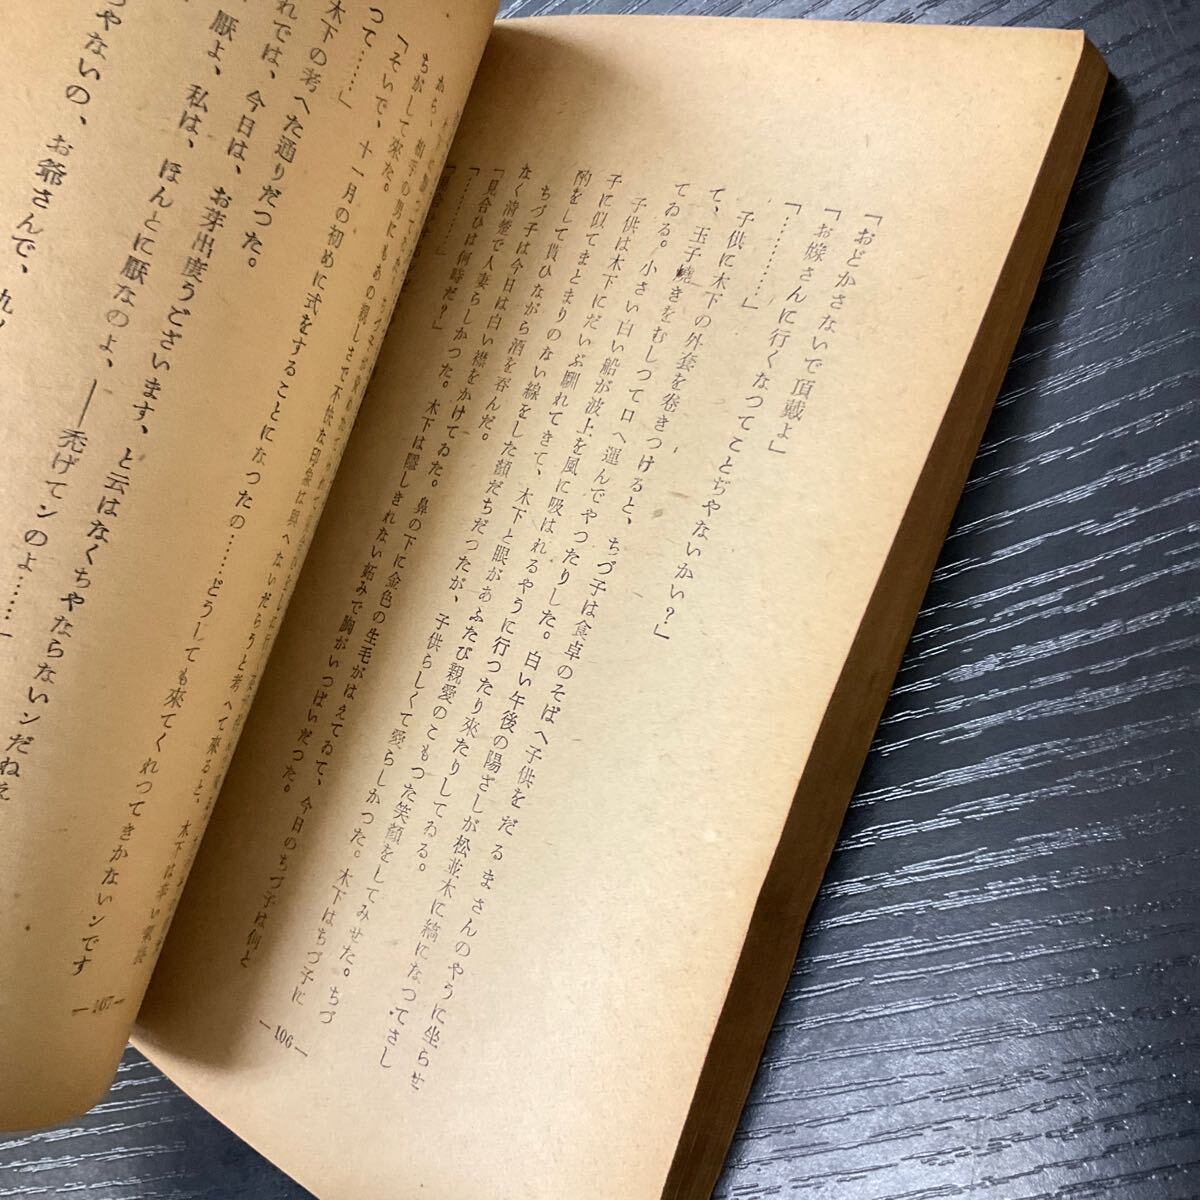 「おどかさないで頂戴よ」
「お嫁さんに行くなつてことぢやないかい？」
「…………」
子供に木下の外套を巻きつけると、ちづ子は食卓のそばへ子供をだるまさんのやうに坐らせ
て、玉子燒きをむしつて口へ運んでやつたりした。白い午後の陽ざしが松並木に縞になつてさし
てゐる。小さい白い船が波上を風に吸はれるやうに行つたり來たりしてゐる。
子供は木下にだいぶ馴れてきて、木下と眼があふたび親愛のこもつた笑顔をしてみせた。ちづ
子に似てまとまりのない線をした顔だちだつたが、子供らしくて愛らしかつた。木下はちづ子に
酌をして貰ひながら酒を呑んだ。
ちづ子は今日は白い襟をかけてゐた。鼻の下に金色の生毛がはえてゐて、今日のちづ子は何と
なく清楚で人妻らしかつた。木下は隱しきれない妬みで胸がいつぱいだつた。
「見合ひは何時だ？」
「…………」
― 106 ―
「そいで、十一月の初めに式をすることになつたの……どうしても來てくれつてきかないンです
つて……」
木下の考へた通りだつた。
れでは、今日は、お芽出度うございます、と云はなくちやならないンだねえ
厭よ、私は、ほんとに厭なのよ、――禿げてンのよ……」
ちやないの、お爺さんで、
― 107 ―